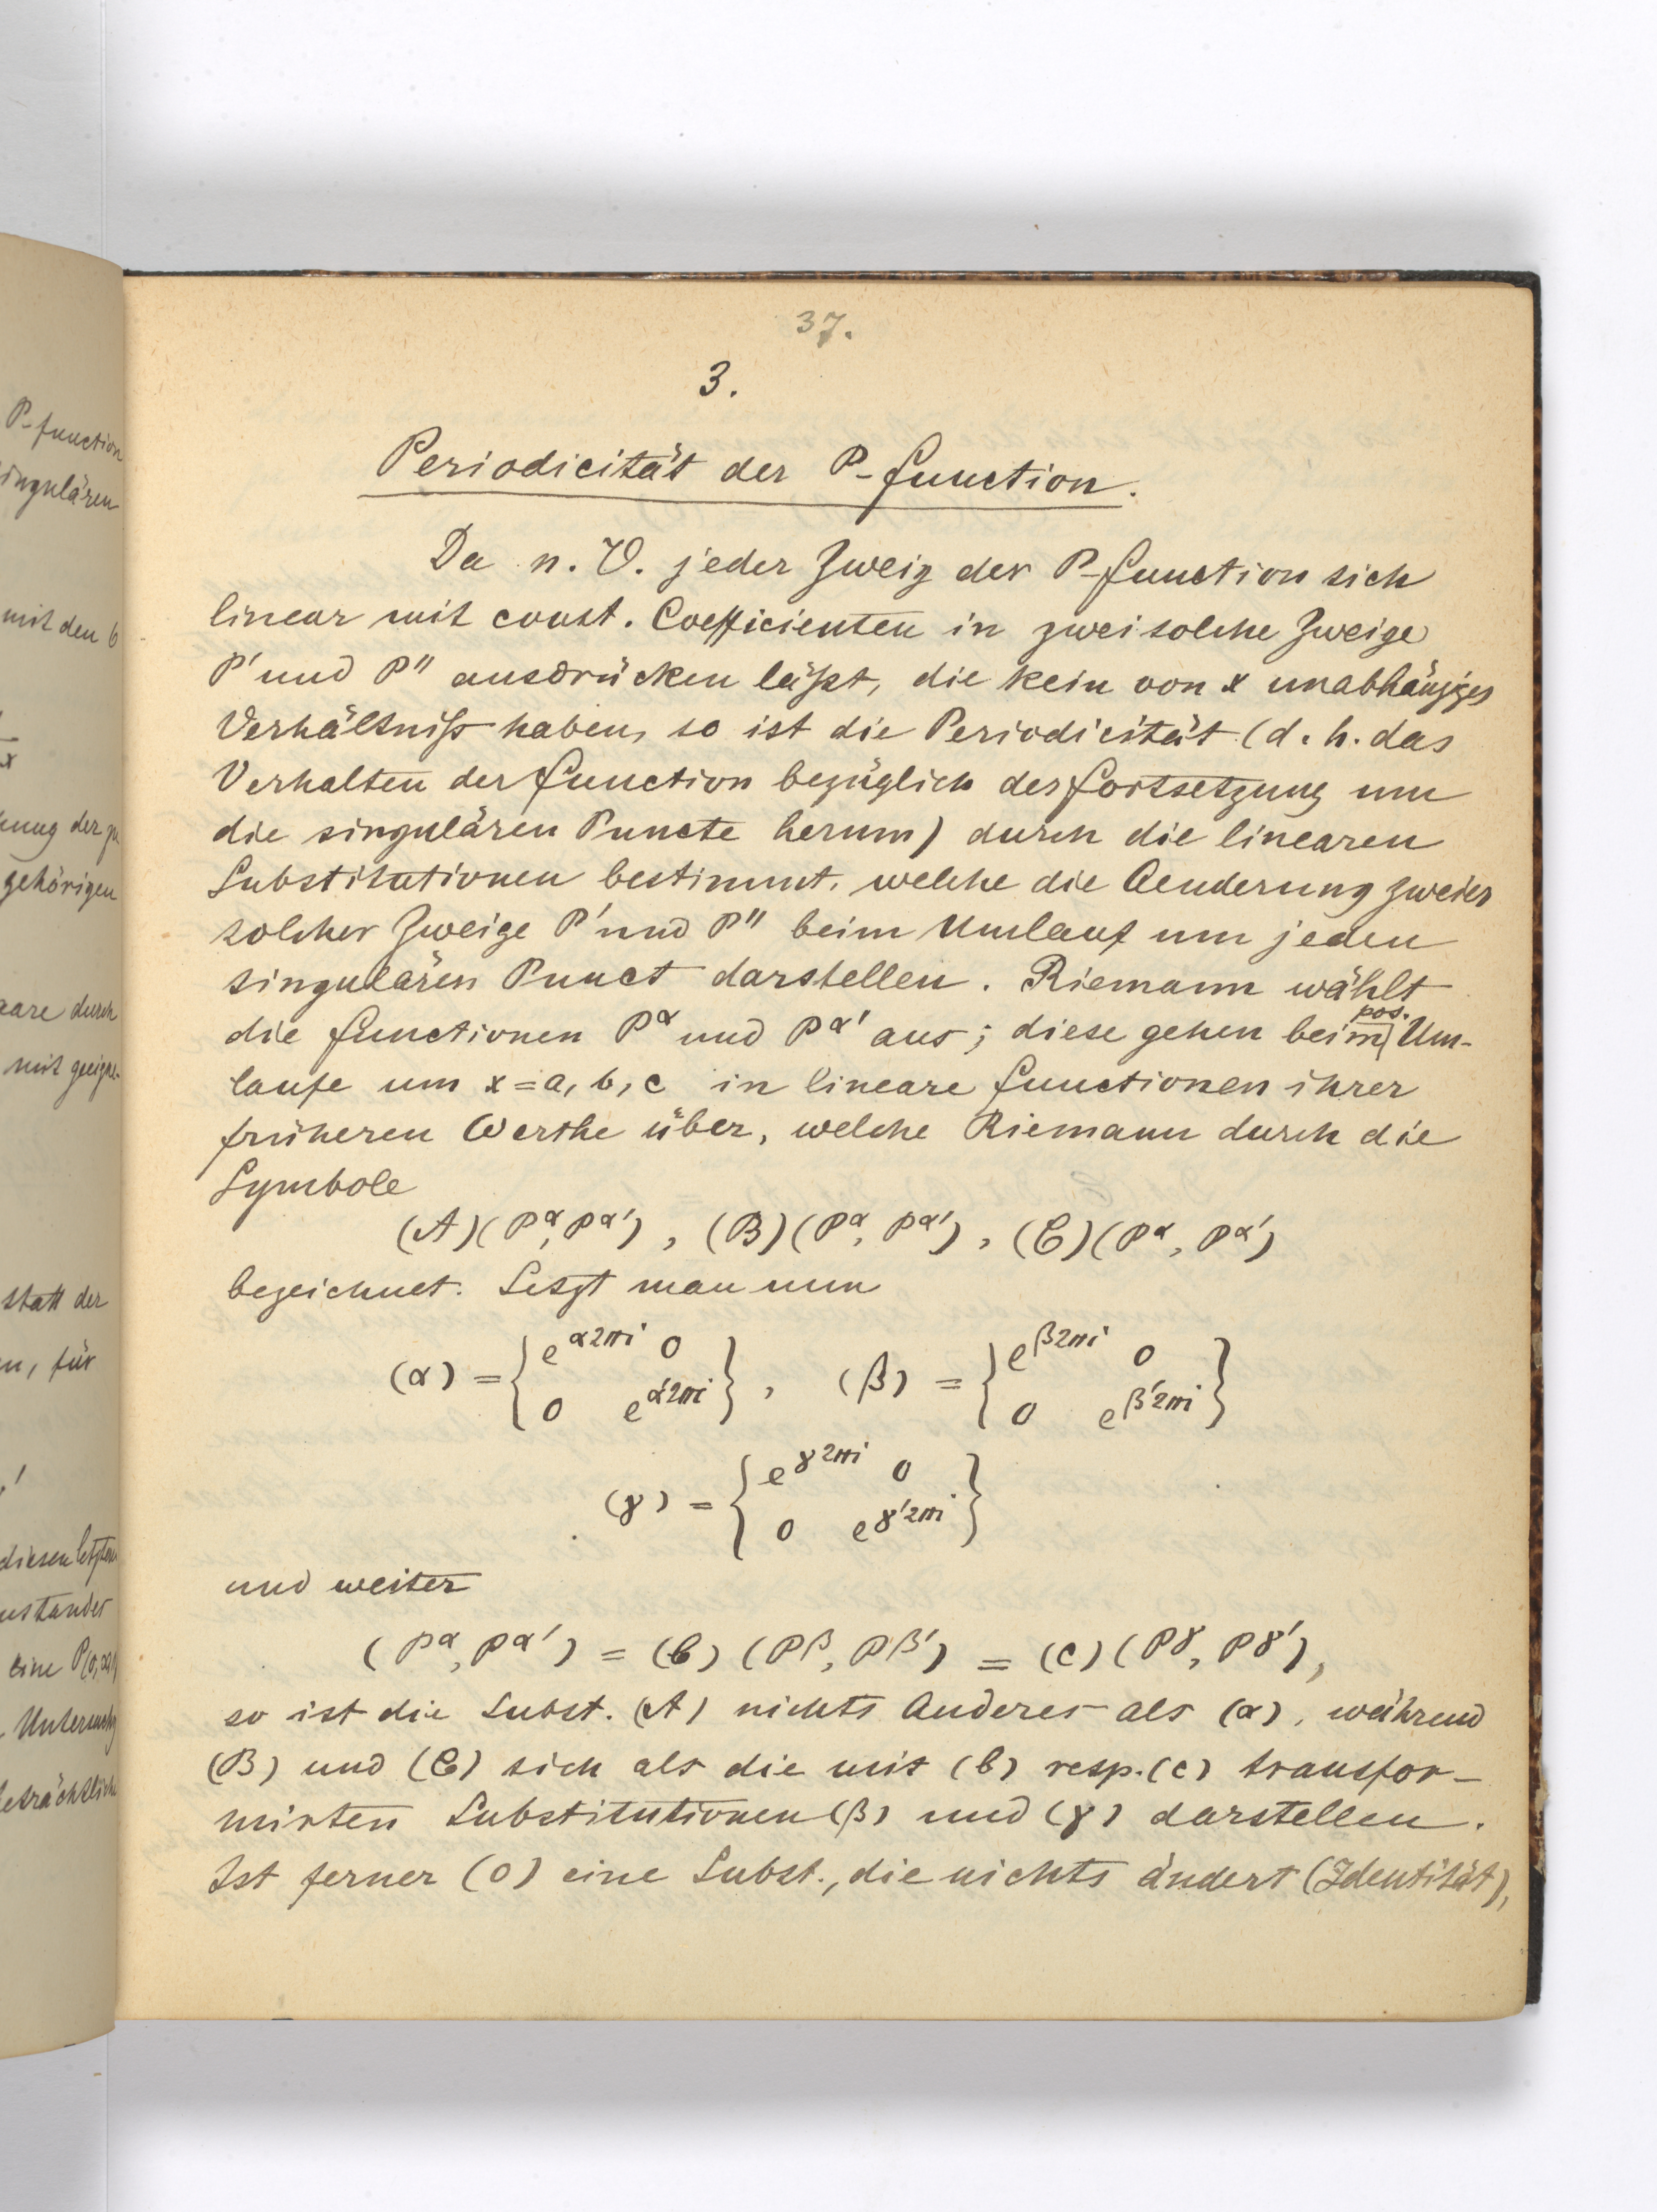 37.
3.
Periodicität der P-function.
Da n. V. jeder Zweig der P-function sich
linear mit const. Coefficienten in zwei solche Zweige
P' und P'' ausdrücken läßt, die kein von x unabhängiges
Verhältniß haben, so ist die Periodicität (d. h. das
Verhalten der function bezüglich der fortsetzung um
die singulären Puncte herum) durch die linearen
Substitutionen bestimmt, welche die Aenderung zweier
solcher Zweige P' und P'' beim Umlauf um jeden
singulären Punct darstellen. Riemann wählt
die functionen P^α und P^α' aus; diese gehen beim pos. Um-
laufe um x = a, b, c in lineare functionen ihrer
früheren Werthe über, welche Riemann durch die
Symbole
(A)(P^α, P^α'), (B)(P^α, P^α'), (C)(P^α, P^α')
bezeichnet. Setzt man nun
(α) = { e^α2πi 0 / 0 e^α'2πi }, (β) = { e^β2πi 0 / 0 e^β'2πi }
(γ) = { e^γ2πi 0 / 0 e^γ'2πi }
und weiter
(P^α, P^α') = (b) (P^β, P^β') = (c) (P^γ, P^γ'),
so ist die Subst. (A) nichts Anderes als (α), während
(B) und (C) sich als die mit (b) resp. (c) transfor-
mirten Substitutionen (β) und (γ) darstellen.
Ist ferner (0) eine Subst., die nichts ändert (Identität),
P-function
ingulären
mit den 6
x
gehörigen
durch
mit
statt der
für
diesen
eine